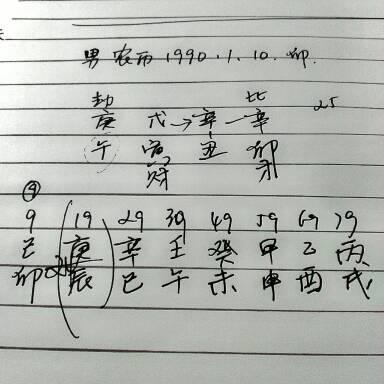 男 农历 1990.1.10.卯.
劫 比
庚 戊→辛一辛 25
午 寅 丑 卯
财 才
④
9 19 29 39 49 59 69 79
己 庚 辛 壬 癸 甲 乙 丙
卯 辰 巳 午 未 申 酉 戌